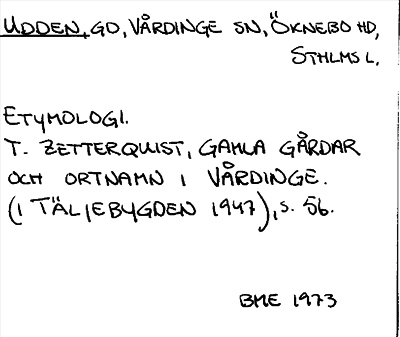 UDDEN, GD, VÅRDINGE SN, ÖKNEBO HD,
STHLMS L.
ETYMOLOGI.
T. ZETTERQUIST, GAMLA GÅRDAR
OCH ORTNAMN I VÅRDINGE.
(I TÄLJEBYGDEN 1947), S. 56.
BME 1973